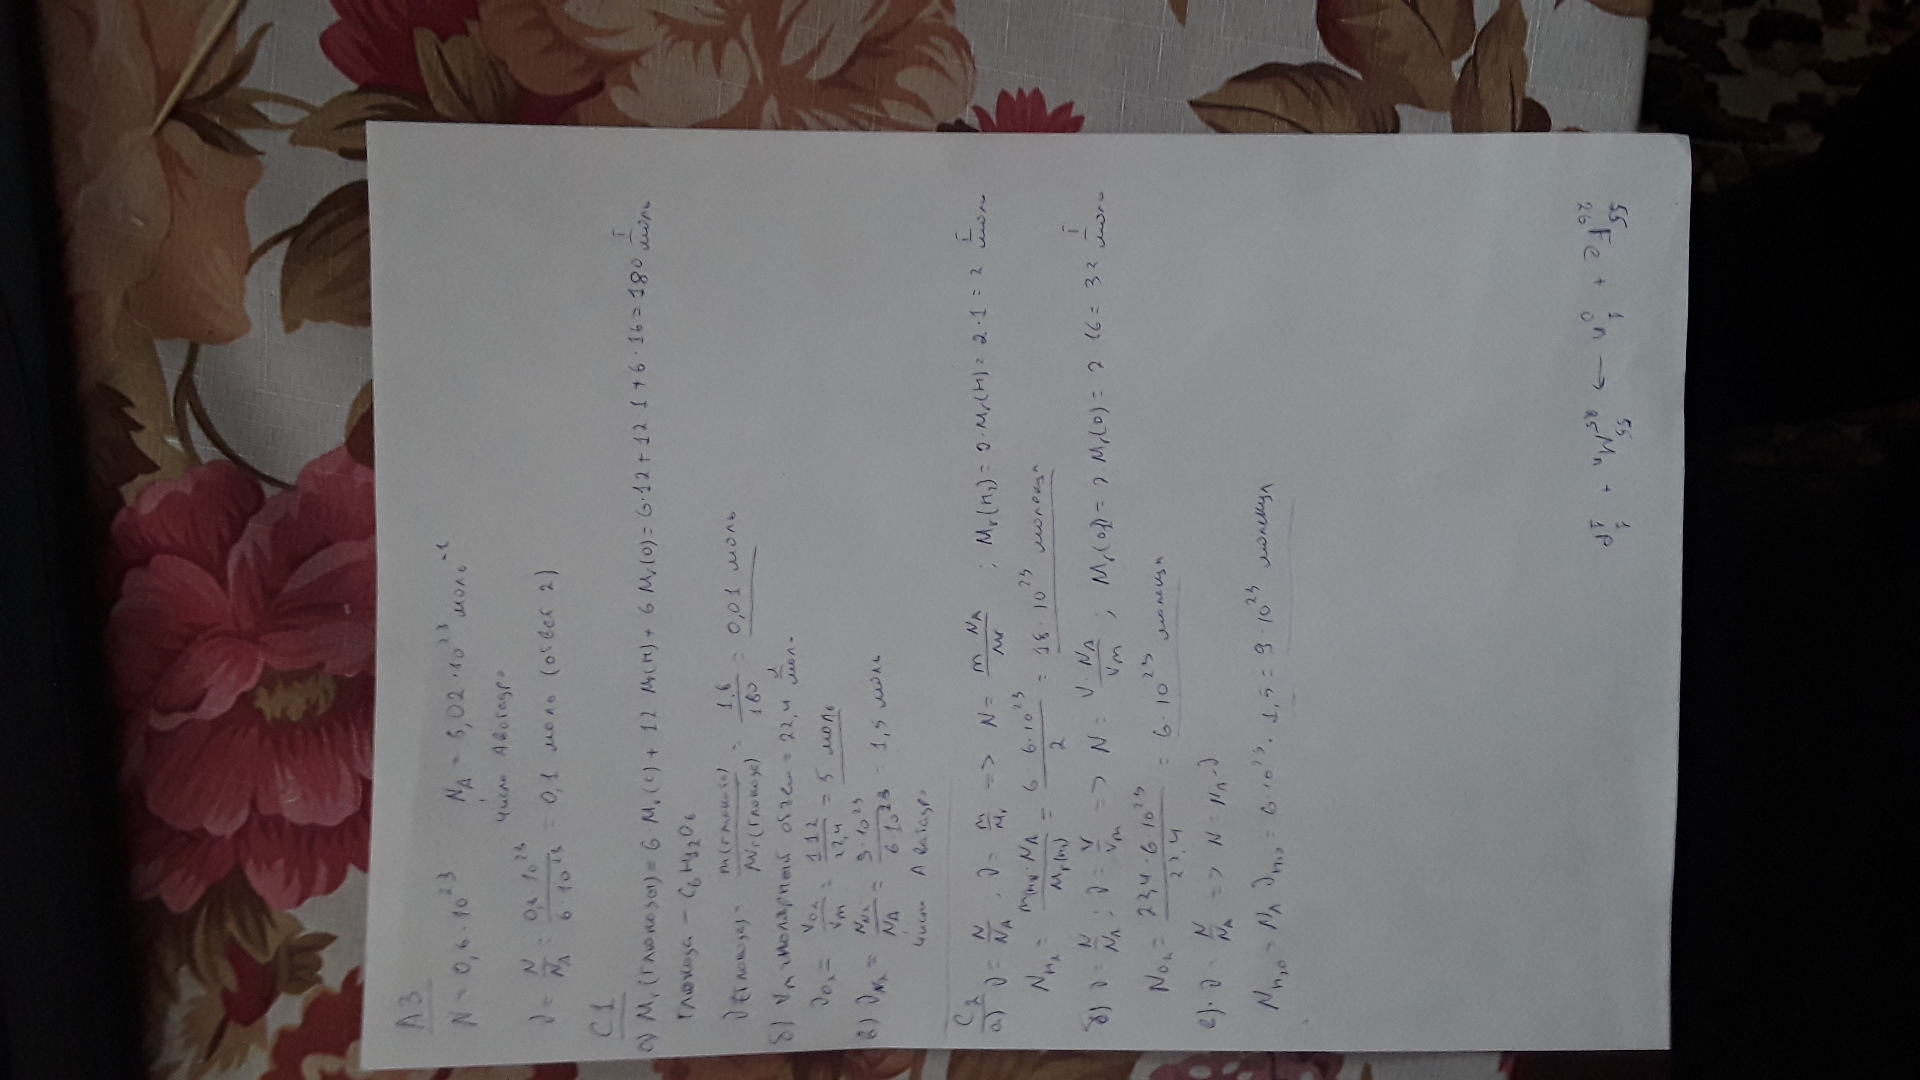 А3
N = 0,6 · 10²³ N_A = 6,02 · 10²³ моль⁻¹
число Авогадро
ν = N/N_A = 0,6 · 10²³ / 6 · 10²³ = 0,1 моль (ответ 2)
С1
а) Mr (глюкозы) = 6 Mr(C) + 12 Mr(H) + 6 Mr(O) = 6·12 + 12·1 + 6·16 = 180 г/моль
глюкоза – C₆H₁₂O₆
ν(глюкоза) = m(глюкоза) / Mr(глюкоза) = 1,8 / 180 = 0,01 моль
б) Vm – молярный объем = 22,4 л/моль
ν O₂ = V O₂ / Vm = 112 / 22,4 = 5 моль
в) ν N₂ = N N₂ / N_A = 9·10²³ / 6·10²³ = 1,5 моль
число Авогадро
С2
а) ν = N/N_A ; ν = m/Mr => N = m N_A / Mr ; Mr(H₂) = 2·Mr(H) = 2·1 = 2 г/моль
N H₂ = m H₂ · N_A / Mr(H₂) = 6 6·10²³ / 2 = 18 · 10²³ молекул
б) ν = N/N_A ; ν = V/Vm => N = V · N_A / Vm ; Mr(O₂) = 2 Mr(O) = 2 16 = 32 г/моль
N O₂ = 22,4 · 6·10²³ / 22,4 = 6 · 10²³ молекул
в) ν = N/N_A => N = N_A · ν
N H₂O = N_A ν H₂O = 6·10²³ · 1,5 = 9 · 10²³ молекул
²⁶₅₅Fe + ¹₀n → ²⁵₅₅Mn + ¹₁p